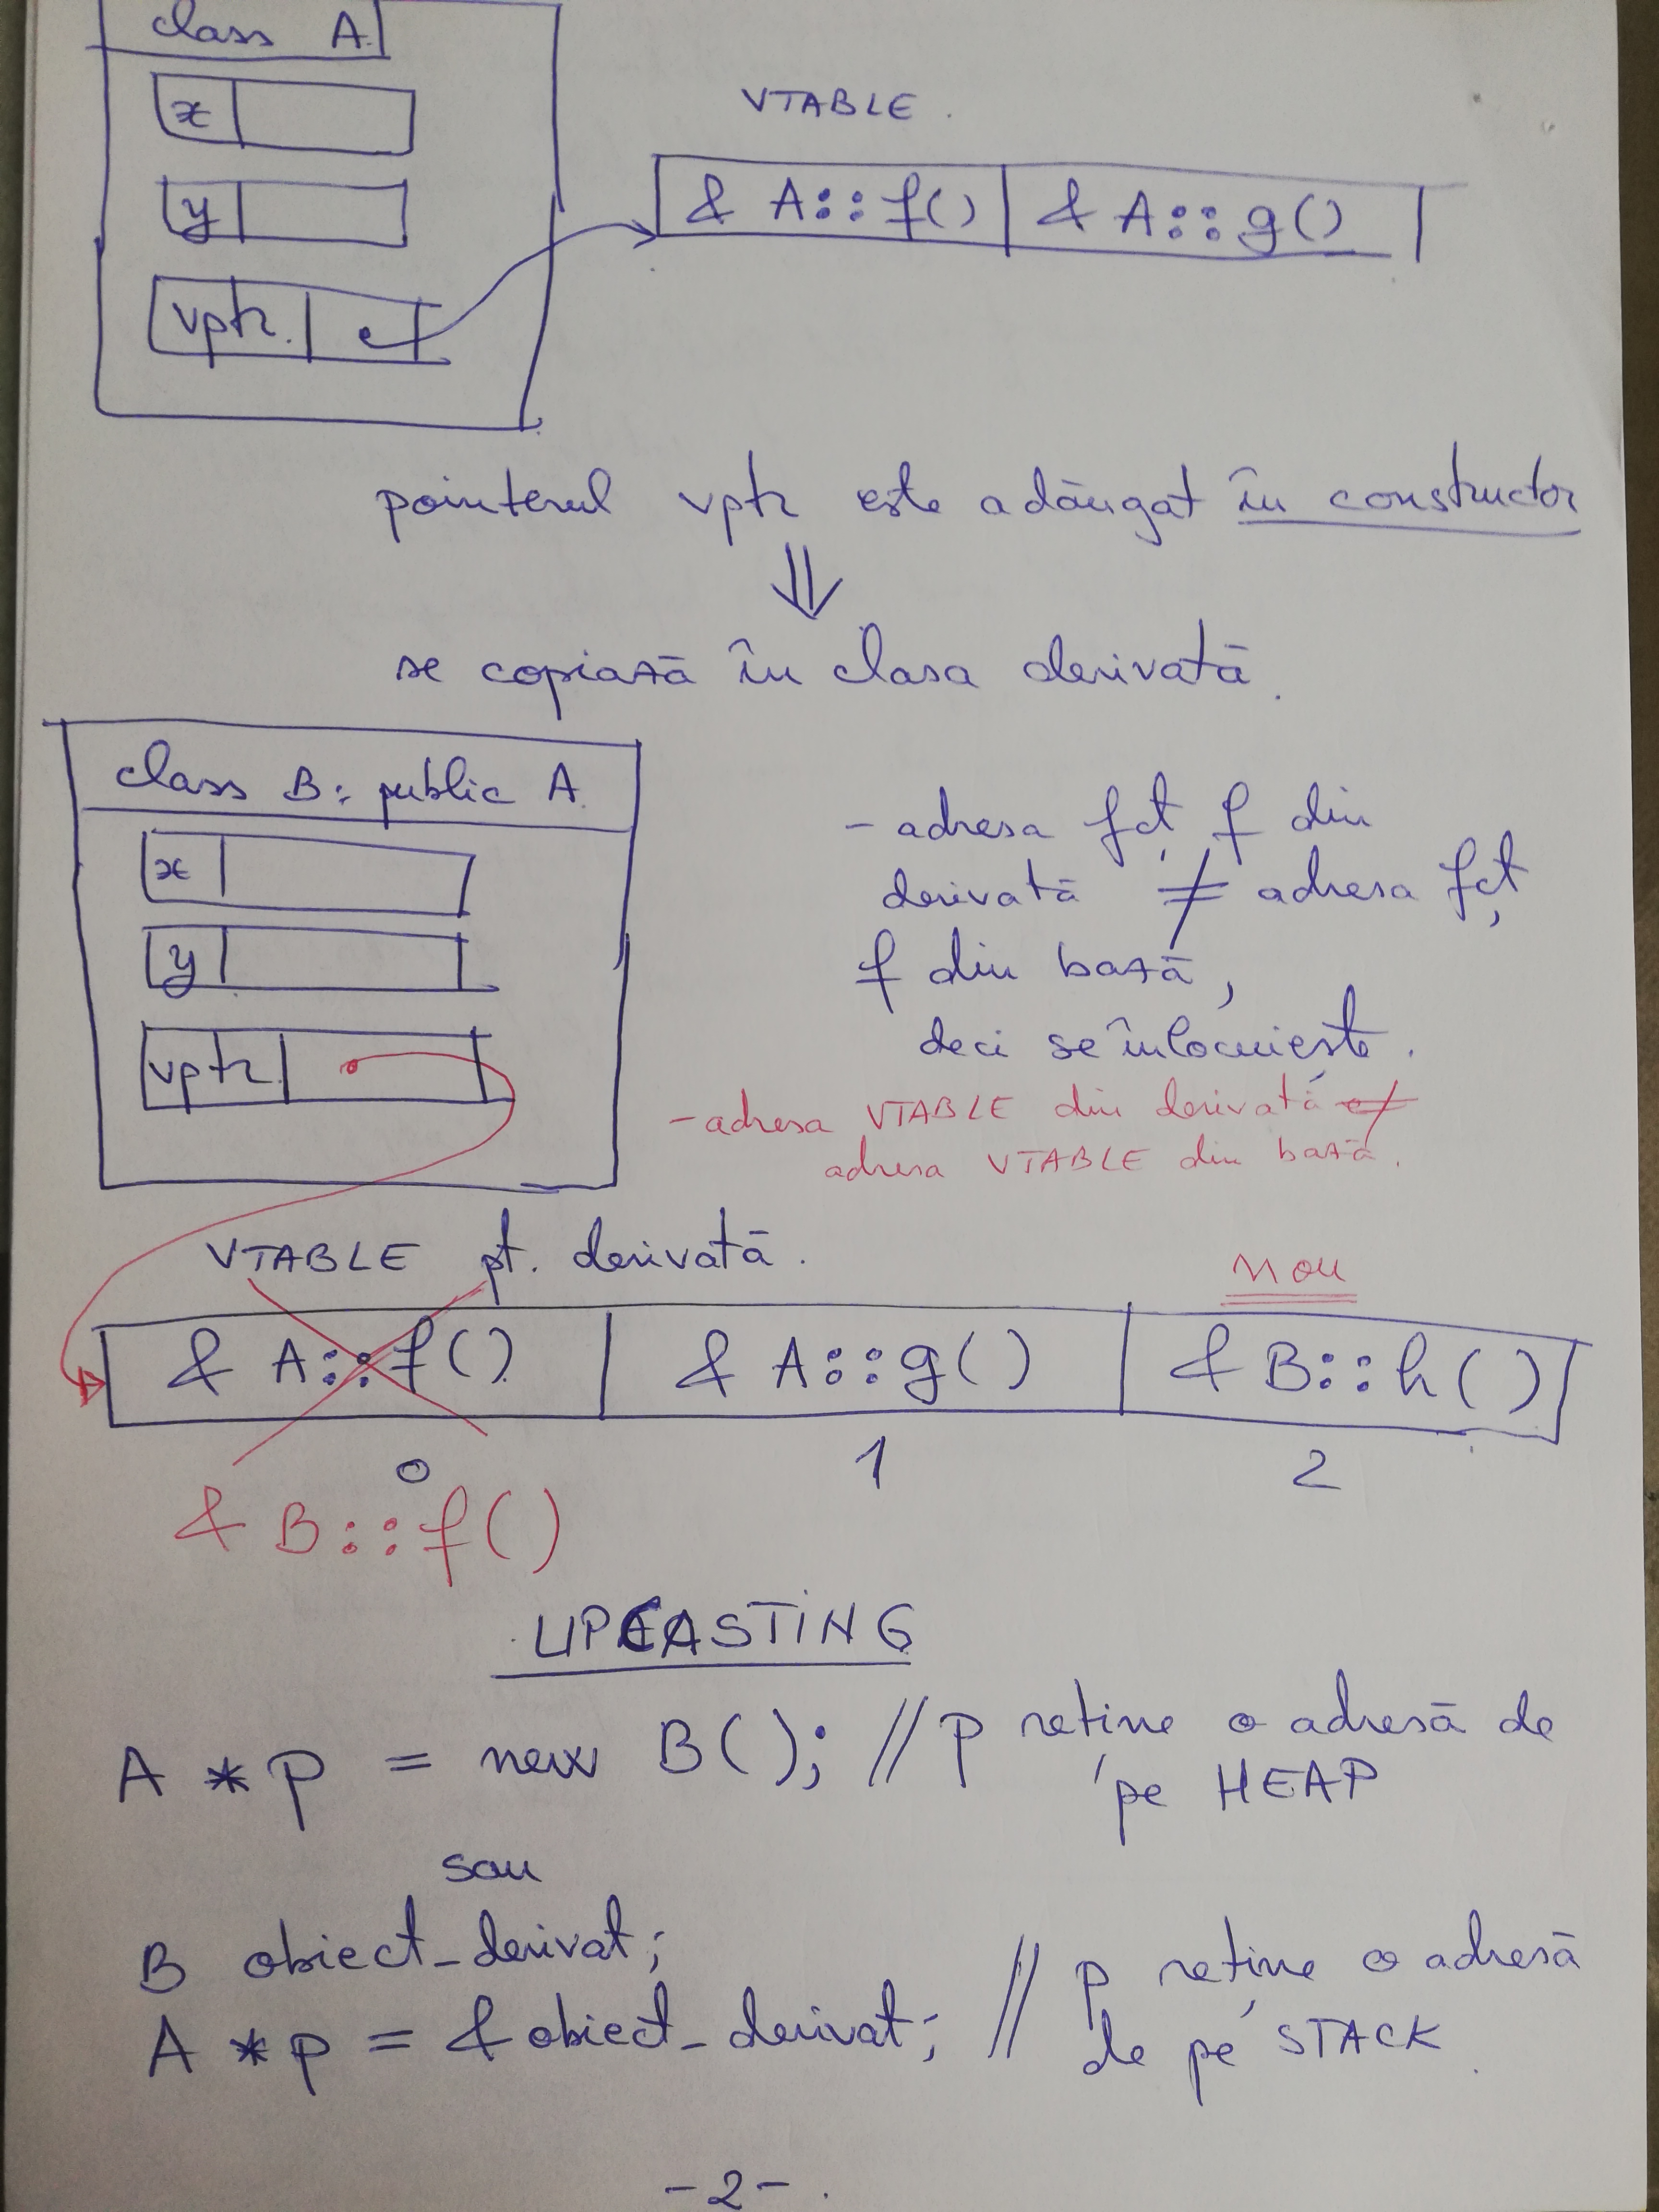 class A
x
VTABLE
y
& A::f() & A::g()
vptr
pointerul vptr este adăugat în constructor
⇓
se copiază în clasa derivată.
class B: public A
x
y
vptr
- adresa fcț f din
derivată ≠ adresa fcț
f din bază,
deci se înlocuiește.
- adresa VTABLE din derivată ≠
adresa VTABLE din bază.
VTABLE pt. derivată.
nou
& A::f() & A::g() & B::h()
0 1 2
& B::f()
UPCASTING
A *p = new B(); // p reține o adresă de
pe HEAP
sau
B obiect_derivat;
A *p = &obiect_derivat; // p reține o adresă
de pe STACK.
-2-.